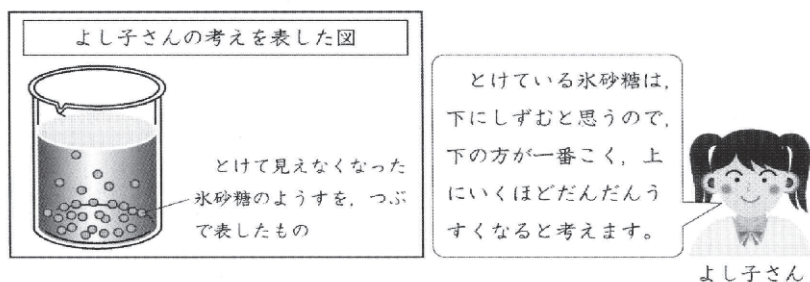 よし子さんの考えを表した図
とけて見えなくなった
氷砂糖のようすを，つぶ
で表したもの
とけている氷砂糖は，
下にしずむと思うので，
下の方が一番こく，上
にいくほどだんだんう
すくなると考えます。
よし子さん